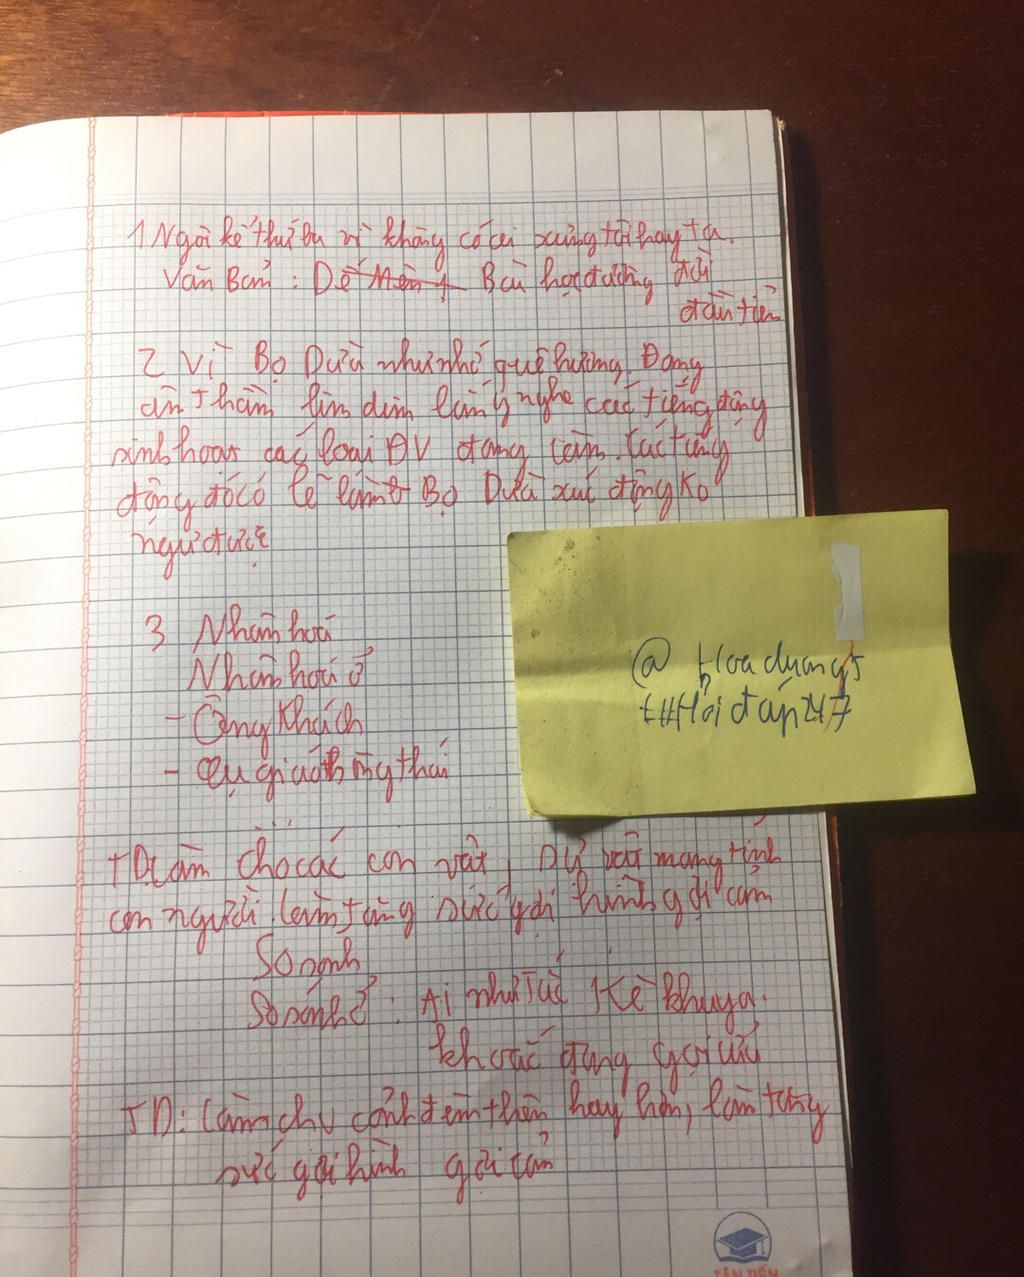 1 Ngôi kể thứ ba vì không có cái xưng tôi hay ta.
Văn Bản : Dế Mèn 1 Bài học đường đời
đầu tiên
2 Vì Bọ Dừa như nhớ quê hương. Đang
ân thầm lim dim lắng nghe các tiếng động
sinh hoạt các loài ĐV đang làm. Các tiếng
động đó có lẽ làm Bọ Dừa xúc động ko
ngủ được
3 Nhân hoá
Nhân hoá ở
- Ông Khách
- cụ giáo
+ TD làm cho các con vật, sự vật mang tính
con người làm tăng sức gợi hình gợi cảm
So sánh
So sánh ở : Ai như Tắc Kè khuya
khoắc đang gọi
TD: Làm cho cảnh đêm thêm hay hơn, làm tăng
sức gợi hình gợi cảm
@ Hoaduong5
t#Hỏi đáp 247
TÂN TIẾN